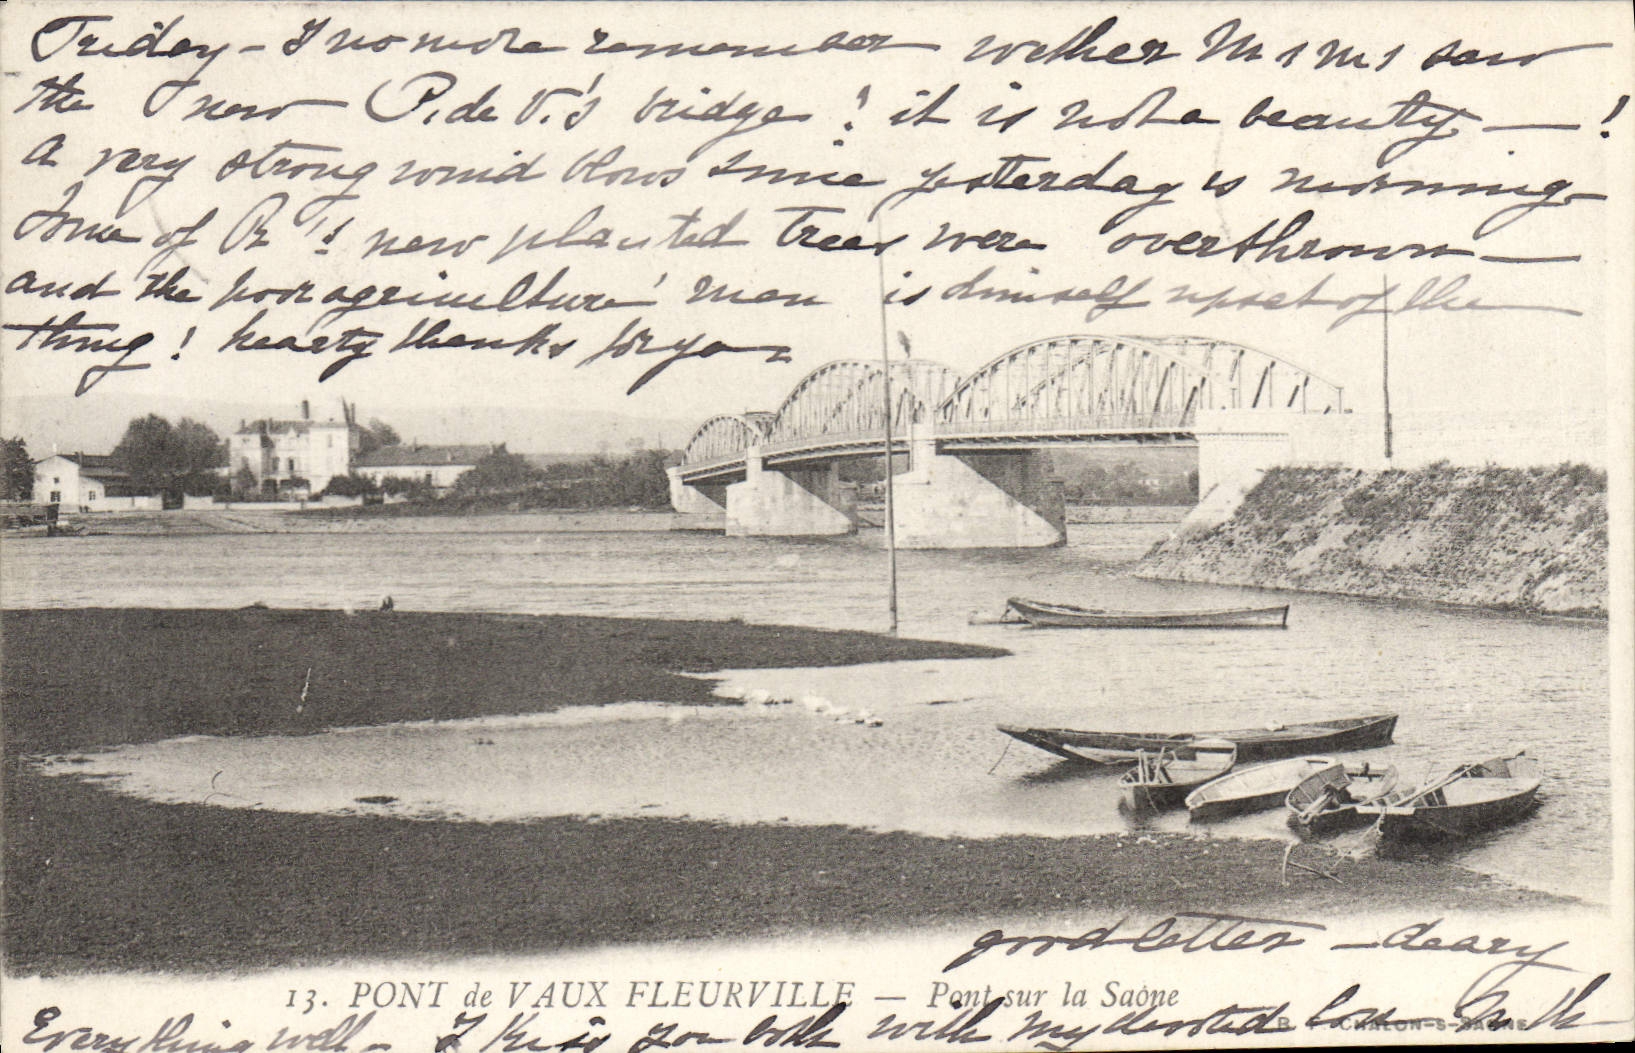 Friday – I no more remember wether M 1 M 1 saw
the new P. de V.'s bridge! it is not a beauty — !
A very strong wind blows since yesterday 's morning –
Some of R 's new planted trees were overthrown —
and the poor agriculture' man is himself upset of the
thing! hearty thanks for your
good letter – deary
13. PONT de VAUX FLEURVILLE — Pont sur la Saône
Everything well – I kiss you both with my devoted love
B. F. CHALON-S-SAONE